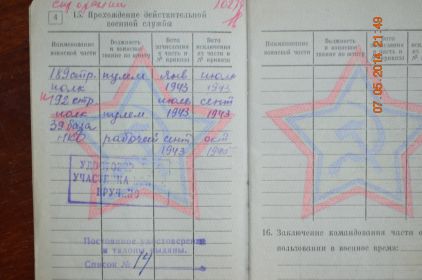 4
15. Прохождение действительной
военной службы
Наименование воинской части
Должность и воинское звание по штату
Дата зачисления в часть и № приказа
Дата исключения из части и № приказа
189 стр. полк
пулем.
янв 1943
июль 1943
192 стр. полк
пулем
июль 1943
сент 1943
39 база
НКО
рабочей
сент 1943
окт 1945
УДОСТОВЕР
УЧАСТНИКА
ВРУЧЕНО
Постоянное удостоверение
и талоны выданы.
Список № 14
Наименование воинской части
Должность и воинское звание по штату
16. Заключение командования части о
пользовании в военное время:
07.05.2015 21:49